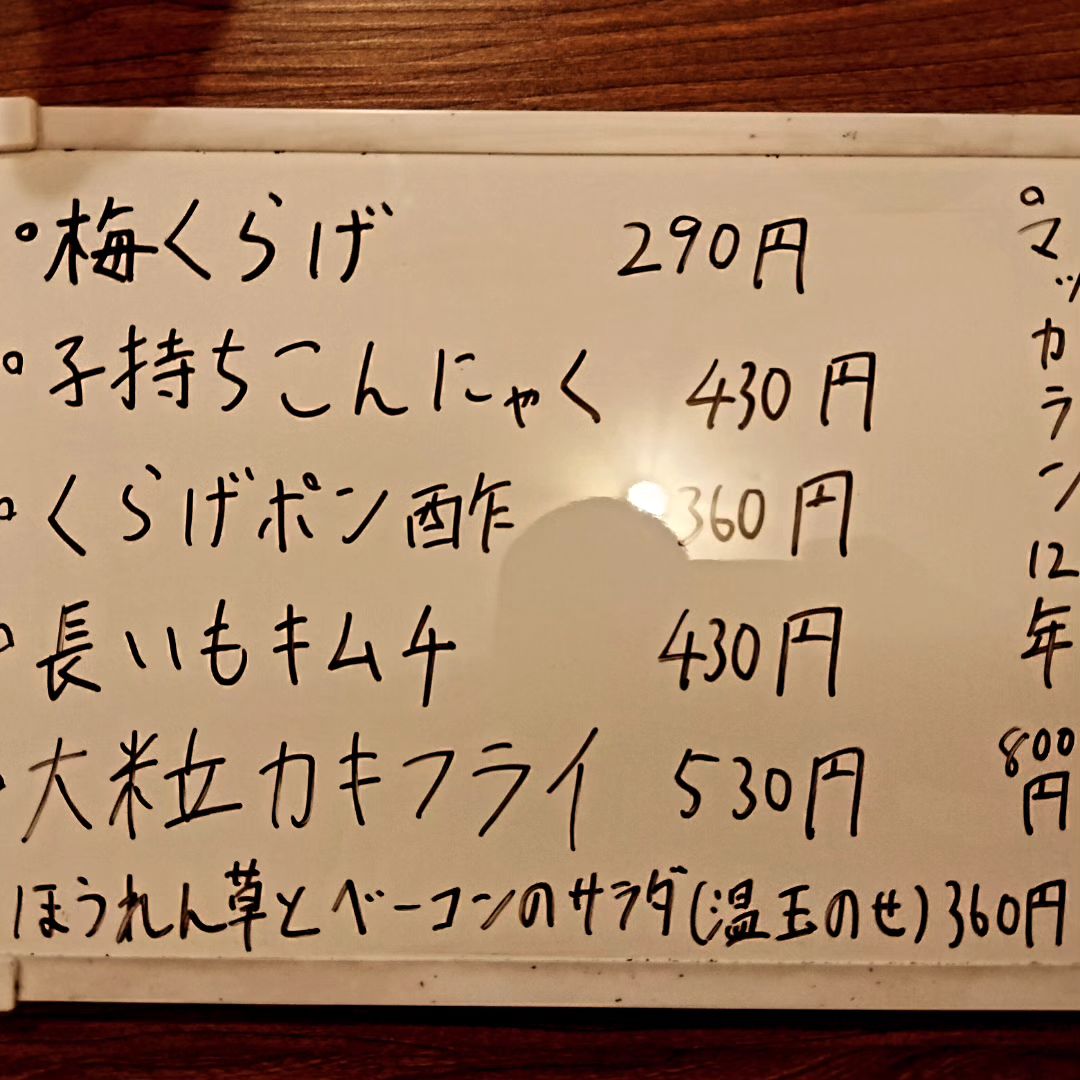 ◦梅くらげ 290円
◦子持ちこんにゃく 430円
◦くらげポン酢 360円
◦長いもキムチ 430円
大粒カキフライ 530円
ほうれん草とベーコンのサラダ(温玉のせ) 360円
◦マッカラン12年 800円